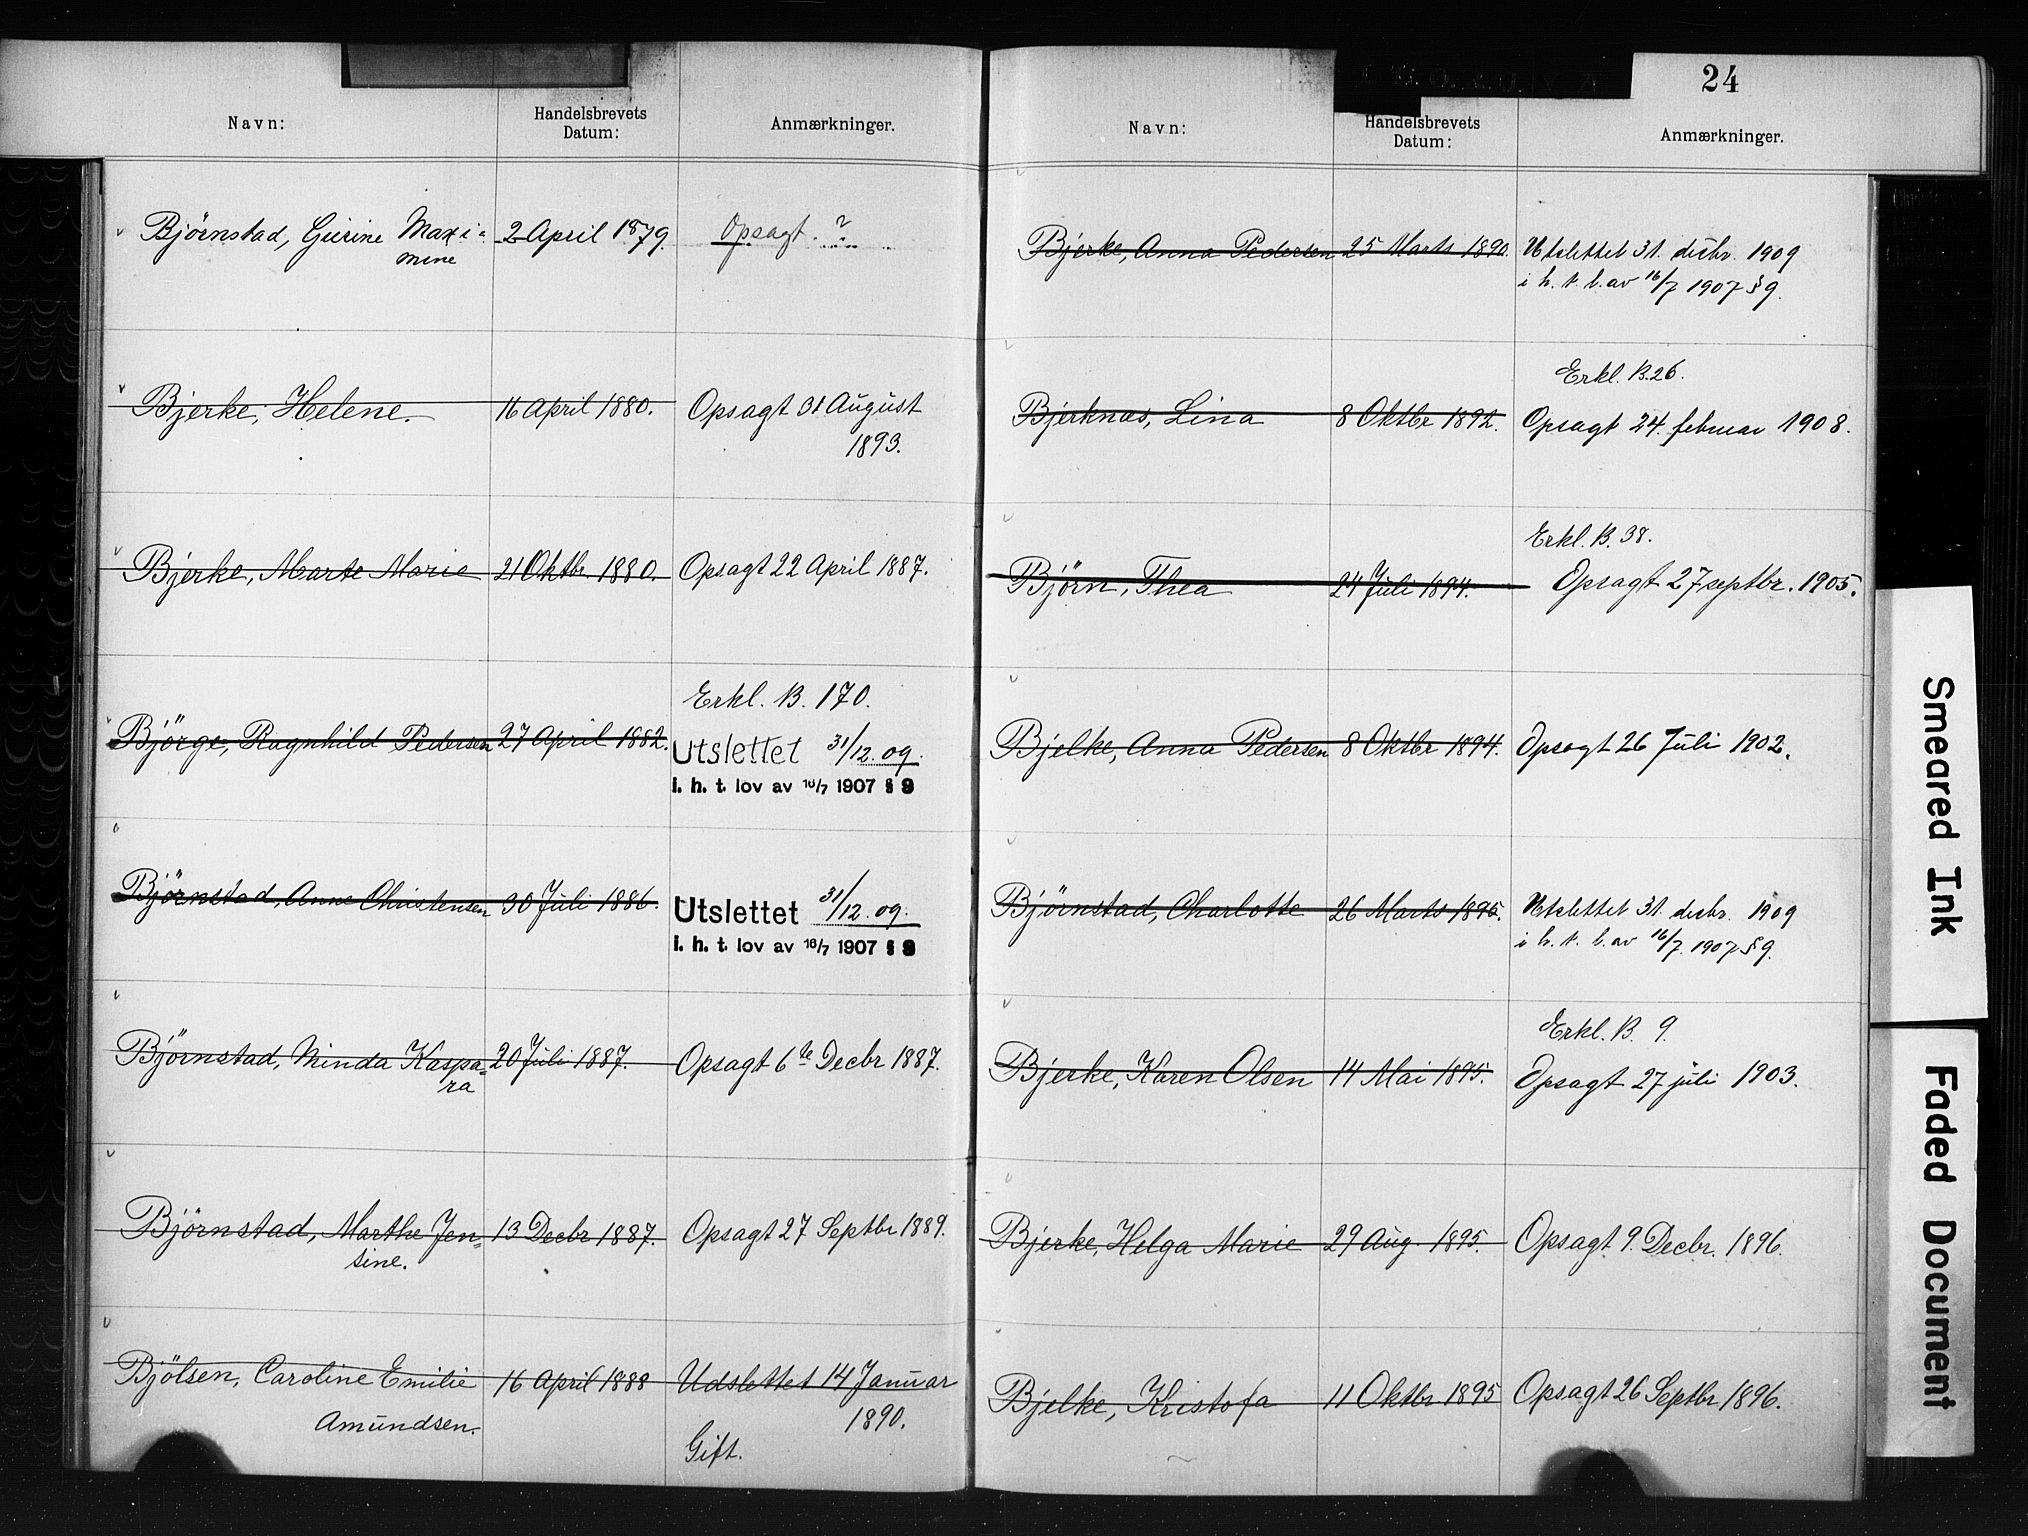 Navn: Handelsbrevets Datum: Anmærkninger.
Bjørnstad, Gurine Maxi- 2 April 1879. Opsagt. ?
mine
Bjerke, Helene. 16 April 1880. Opsagt 31 August
1893.
Bjerke, Marte Marie 21 Oktbr. 1880. Opsagt 22 April 1887.
Erkl. B. 170.
Bjørge, Ragnhild Pedersen 27 April 1882. Utslettet 31/12.09.
i. h. t. lov av 16/7 1907 § 9
Bjørnstad, Anne Christensen 30 Juli 1886. Utslettet 31/12.09.
i. h. t. lov av 16/7 1907 § 9
Björnstad, Minda Kaspa- 20 Juli 1887. Opsagt 6te Decbr 1887.
ra
Björnstad, Marthe Jen- 13 Decbr 1887. Opsagt 27 Septbr 1889.
sine.
Bjölsen, Caroline Emilie 16 April 1888 Udslettet 14 Januar
Amundsen. 1890.
Gift.
24
Navn: Handelsbrevets Datum: Anmærkninger.
Bjerke, Anna Pedersen 25 Marts 1890. Utslettet 31. decbr. 1909
i h. t. l. av 16/7 1907 § 9.
Erkl. B. 26.
Bjerknæs, Lina 8 Oktbr 1892. Opsagt 24. februar 1908.
Erkl. B. 38.
Björn, Thea 24 Juli 1894. Opsagt 27 septbr. 1905.
Bjelke, Anna Pedersen 8 Oktbr 1894. Opsagt 26 Juli 1902.
Bjørnstad, Charlotte 26 Marts 1895. Utslettet 31. decbr. 1909
i h. t. l. av 16/7. 1907 § 9.
Erkl. B. 9.
Bjerke, Karen Olsen 14 Mai 1895. Opsagt 27 juli 1903.
Bjerke, Helga Marie 29 Aug. 1895. Opsagt 9. Decbr. 1896.
Bjelke, Kristofa 11 Oktbr 1895 Opsagt 26 Septbr 1896.
Smeared Ink
Faded Document